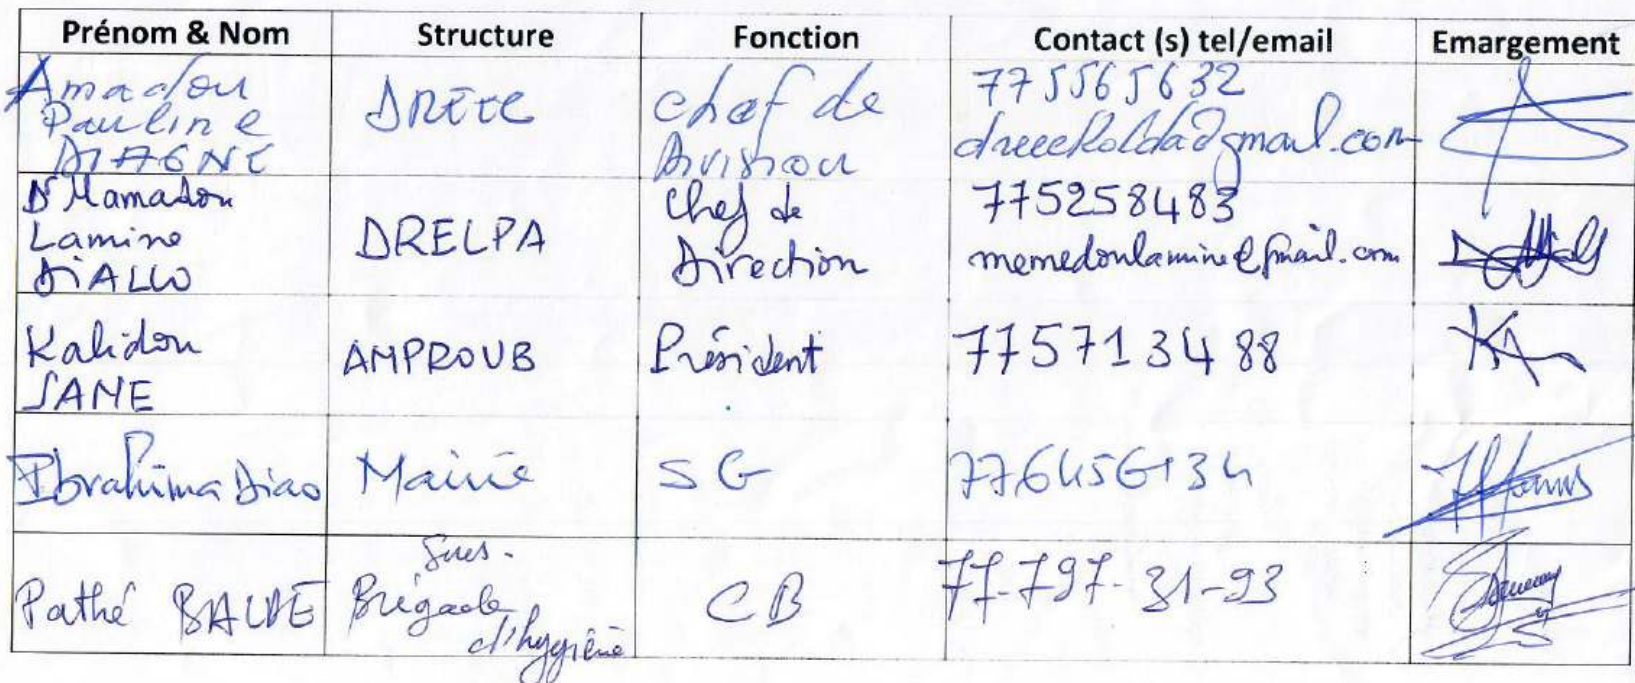 Prénom & Nom Structure Fonction Contact (s) tel/email Emargement
Amadou
Pauline
DIAGNE
DREEC
Chef de
Division
775565632
dreeckolda@gmail.com
Dr Mamadou
Lamine
DIALLO
DRELPA
Chef de
Direction
775258483
memedoulamine@gmail.com
Kalidou
SANE
AMPROUB
Président
775713488
Ibrahima Diao
Mairie
SG
776456134
Pathé BALDE
Brigade
d'hygiène
CB
77-797-31-93